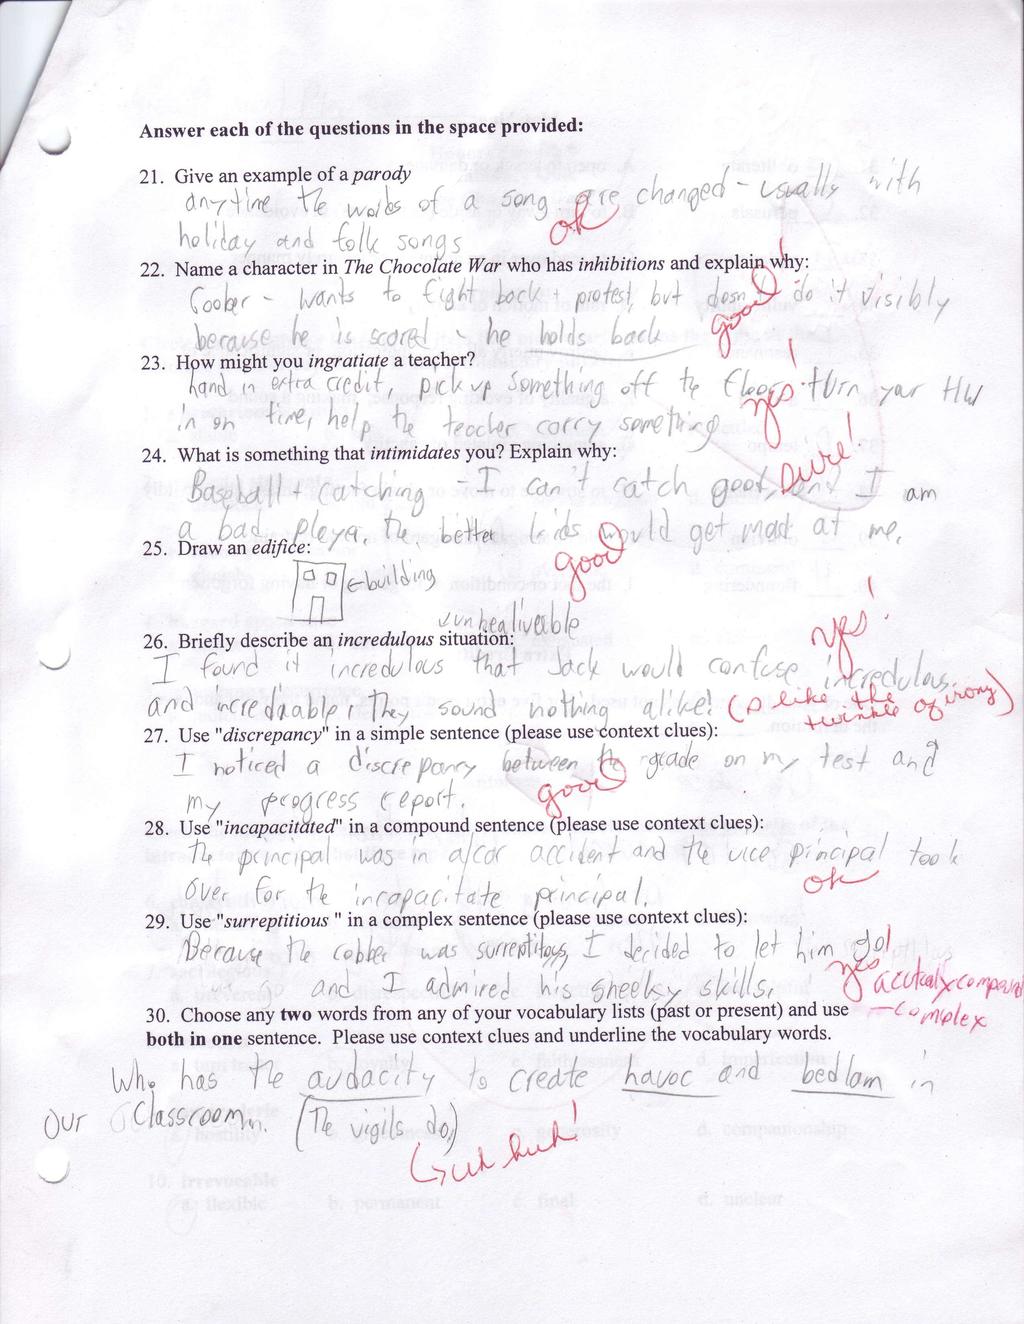 Answer each of the questions in the space provided:
21. Give an example of a parody
anytime the words of a song are changed - usually with
holiday and folk songs
ok
22. Name a character in The Chocolate War who has inhibitions and explain why:
Goober - wants to fight back + protest, but doesn't do it visibly
because he is scared - he holds back
good!
23. How might you ingratiate a teacher?
hand in extra credit, pick up something off the floor, turn your HW
in on time, help the teacher carry something
yes!
24. What is something that intimidates you? Explain why:
sure!
Baseball + catching - I can't catch good, and I am
a bad player, the better kids would get mad at me.
25. Draw an edifice:
good
building
unbealiveable
26. Briefly describe an incredulous situation:
yes!
I found it incredulous that Jack would confuse incredulous
and incredaable, they sound nothing alike!
(I like the
twinkle of irony)
27. Use "discrepancy" in a simple sentence (please use context clues):
I noticed a discrepancy between the grade on my test and
my progress report.
good
28. Use "incapacitated" in a compound sentence (please use context clues):
The principal was in a car accident and the vice principal took
over for the incapacitate principal.
ok
29. Use "surreptitious " in a complex sentence (please use context clues):
Because the robber was surreptitous, I decided to let him go
and I admired his sheeksy skills.
yes! acutually compound
-complex
30. Choose any two words from any of your vocabulary lists (past or present) and use
both in one sentence. Please use context clues and underline the vocabulary words.
Who has the audacity to create havoc and bedlam in
our Classroom. (The vigils do)
uh huh!